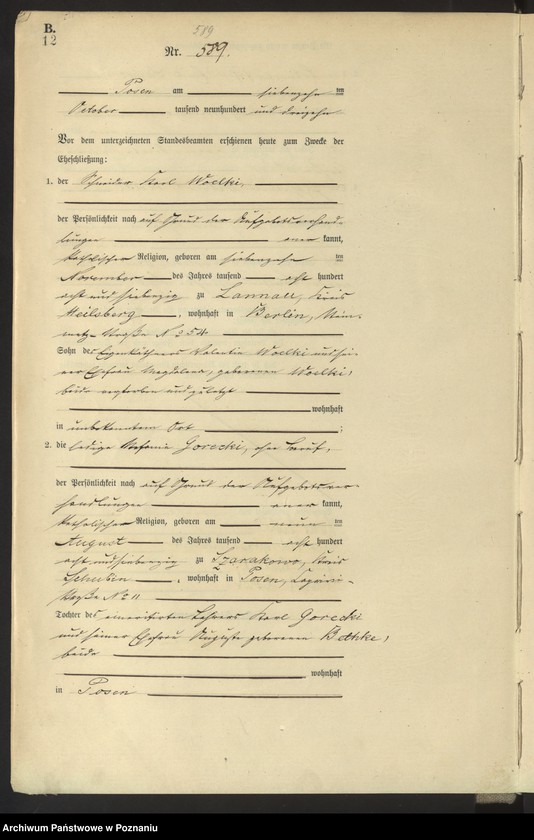 B.
12
589
Nr. 589.
Posen am siebenzehn ten
October tausend neunhundert und dreizehn
Vor dem unterzeichneten Standesbeamten erschienen heute zum Zwecke der
Eheschließung:
1. der Schneider Karl Woelki,
der Persönlichkeit nach auf Grund der Aufgebotsverhand-
lungen aner kannt,
katholischer Religion, geboren am siebenzehn ten
November des Jahres tausend acht hundert
acht und siebenzig zu Lannau, Kreis
Heilsberg, wohnhaft in Berlin,
Straße N 254
Sohn des Eigenkäthners Valentin Woelki und sei-
ner Ehefrau Magdalena, geborenen Woelki,
beide verstorben und zuletzt
wohnhaft
in unbekanntem Ort ;
2. die ledige Stefanie Gorecki, ohne Beruf,
der Persönlichkeit nach auf Grund der Aufgebotsver-
handlungen aner kannt,
katholischer Religion, geboren am neun ten
August des Jahres tausend acht hundert
acht und siebenzig zu Szarakowo, Kreis
Schubin, wohnhaft in Posen,
straße N° 11
Tochter des emeritirten Lehrers Karl Gorecki
und seiner Ehefrau Auguste geborenen Bethke,
beide
wohnhaft
in Posen
Archiwum Państwowe w Poznaniu